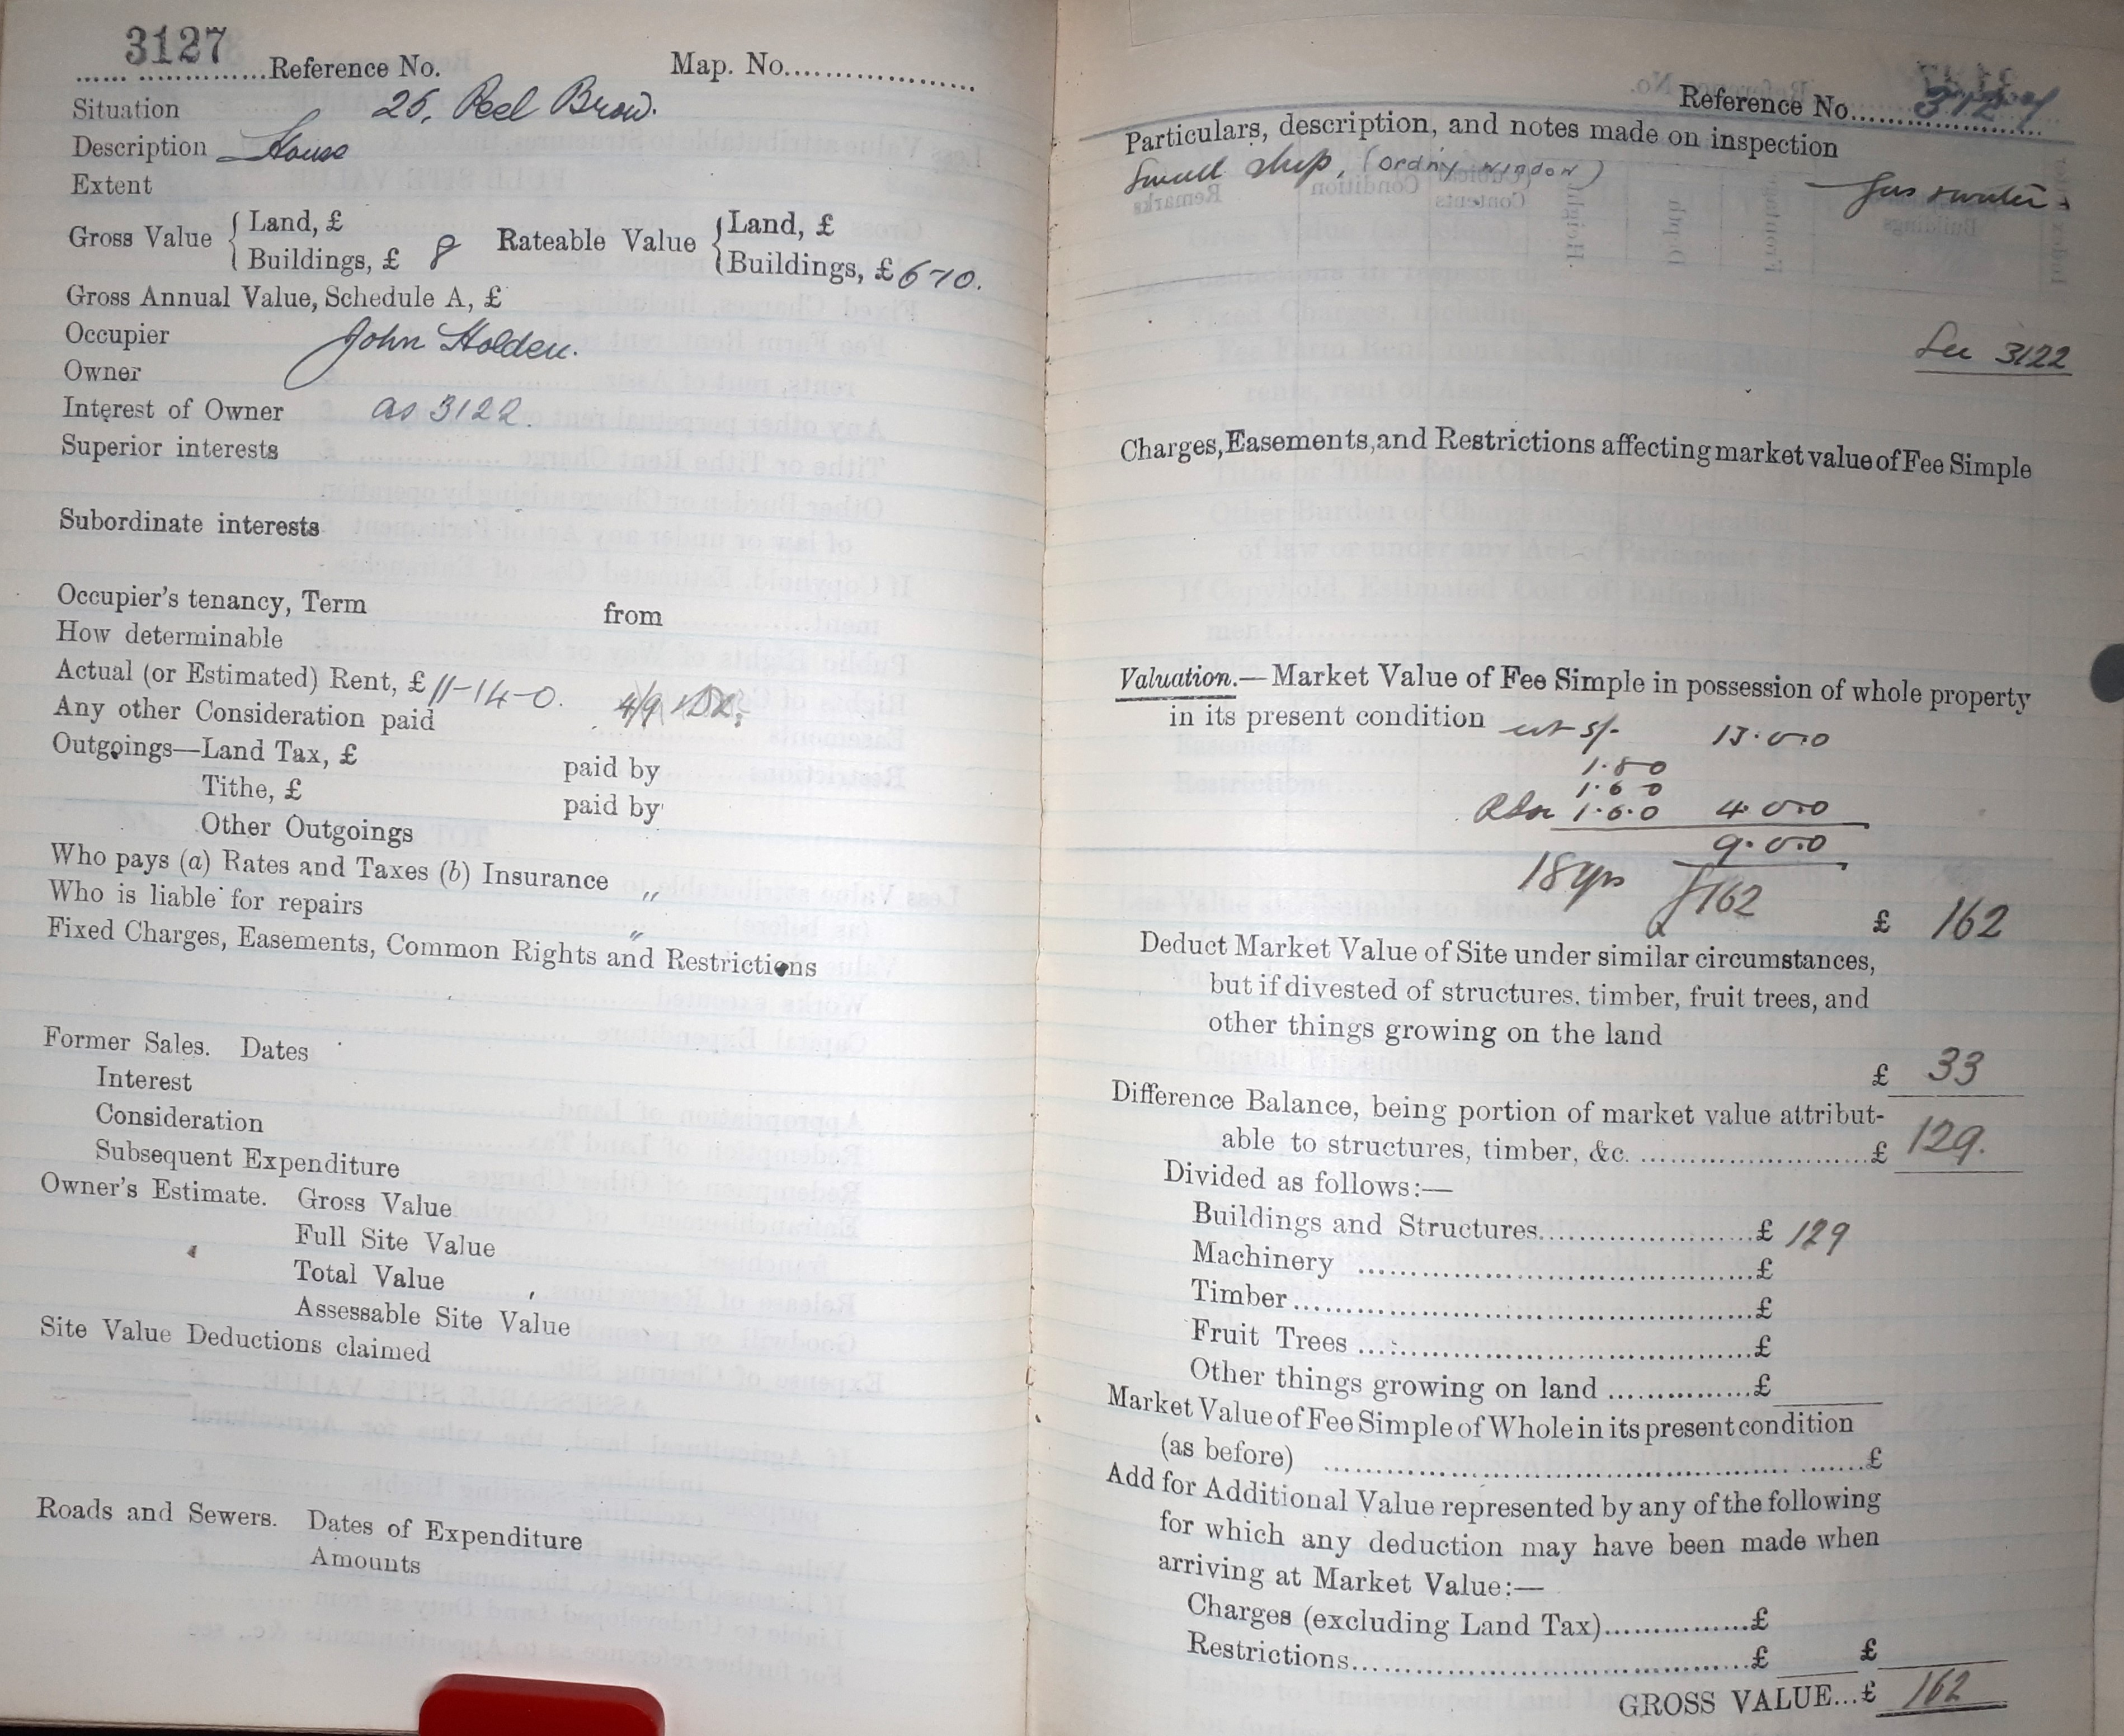 3127
Reference No. Map. No.
Situation 25, Peel Brow.
Description House
Extent
Gross Value { Land, £ Rateable Value { Land, £
Buildings, £ 8 Buildings, £ 6-10.
Gross Annual Value, Schedule A, £
Occupier John Holden.
Owner
Interest of Owner as 3122.
Superior interests
Subordinate interests
Occupier's tenancy, Term from
How determinable
Actual (or Estimated) Rent, £ 11-14-0. 4/9
Any other Consideration paid
Outgoings—Land Tax, £ paid by
Tithe, £ paid by
Other Outgoings
Who pays (a) Rates and Taxes (b) Insurance "
Who is liable for repairs "
Fixed Charges, Easements, Common Rights and Restrictions
Former Sales. Dates
Interest
Consideration
Subsequent Expenditure
Owner's Estimate. Gross Value
Full Site Value
Total Value
Assessable Site Value
Site Value Deductions claimed
Roads and Sewers. Dates of Expenditure
Amounts
Reference No. 3127
Particulars, description, and notes made on inspection
Small shop, (ordny window)
Gas & water
See 3122
Charges, Easements, and Restrictions affecting market value of Fee Simple
Valuation.—Market Value of Fee Simple in possession of whole property
in its present condition 5/- 13.0.0
1.8.0
1.6.0
1.6.0 4.0.0
9.0.0
18 yrs £162
£ 162
Deduct Market Value of Site under similar circumstances,
but if divested of structures. timber, fruit trees, and
other things growing on the land
£ 33
Difference Balance, being portion of market value attribut-
able to structures, timber, &c. £ 129.
Divided as follows:—
Buildings and Structures £ 129
Machinery £
Timber £
Fruit Trees £
Other things growing on land £
Market Value of Fee Simple of Whole in its present condition
(as before) £
Add for Additional Value represented by any of the following
for which any deduction may have been made when
arriving at Market Value:—
Charges (excluding Land Tax) £
Restrictions £ £
GROSS VALUE...£ 162